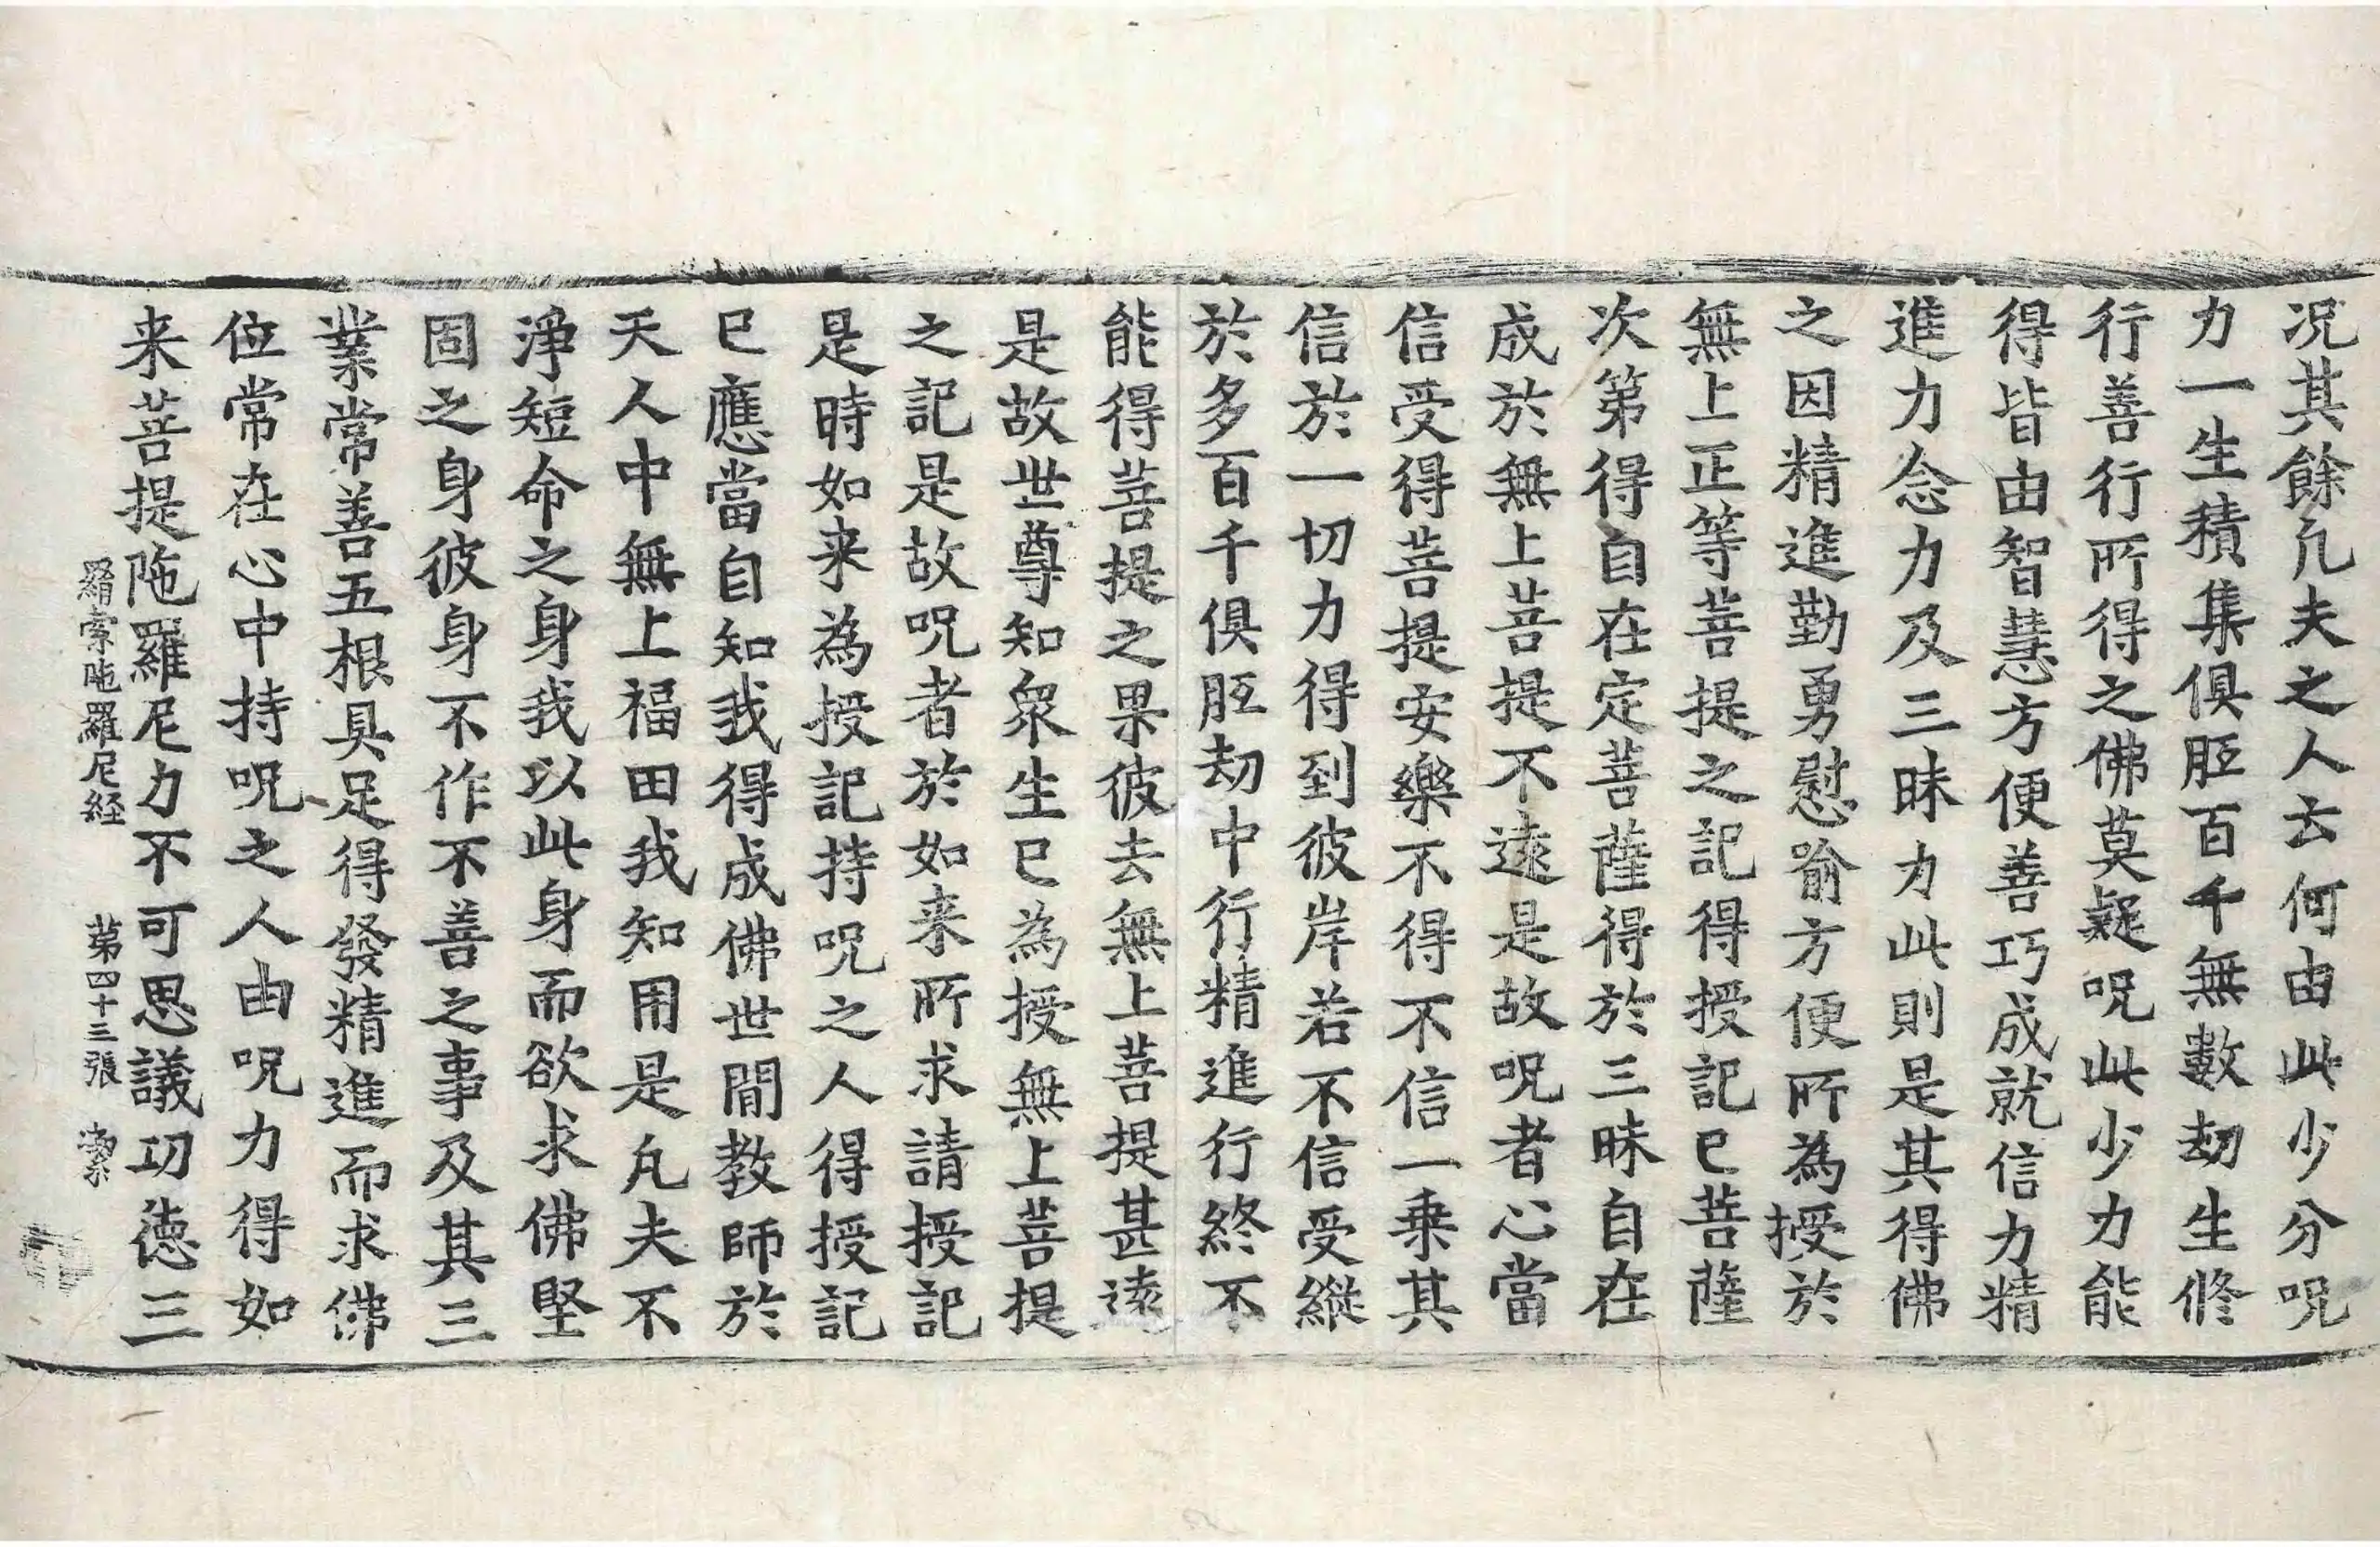 况其餘凢夫之人云何由此少分呪
力一生積集俱胝百千無數劫生修
行善行所得之佛莫疑呪此少力能
得皆由智慧方便善巧成就信力精
進力念力及三昧力此則是其得佛
之因精進勤勇慰喻方便所為授於
無上正等菩提之記得授記已菩薩
次第得自在定菩薩得於三昧自在
成於無上菩提不遠是故呪者心當
信受得菩提安樂不得不信一乗其
信於一切力得到彼岸若不信受縱
於多百千俱胝劫中行精進行終不
能得菩提之果彼去無上菩提甚遠
是故世尊知衆生已為授無上菩提
之記是故呪者於如来所求請授記
是時如来為授記持呪之人得授記
已應當自知我得成佛世間教師於
天人中無上福田我知用是凢夫不
淨短命之身我以此身而欲求佛堅
固之身彼身不作不善之事及其三
業常善五根具足得發精進而求佛
位常在心中持呪之人由呪力得如
来菩提陁羅尼力不可思議功德三
羂索陁羅尼経 第四十三張 絜